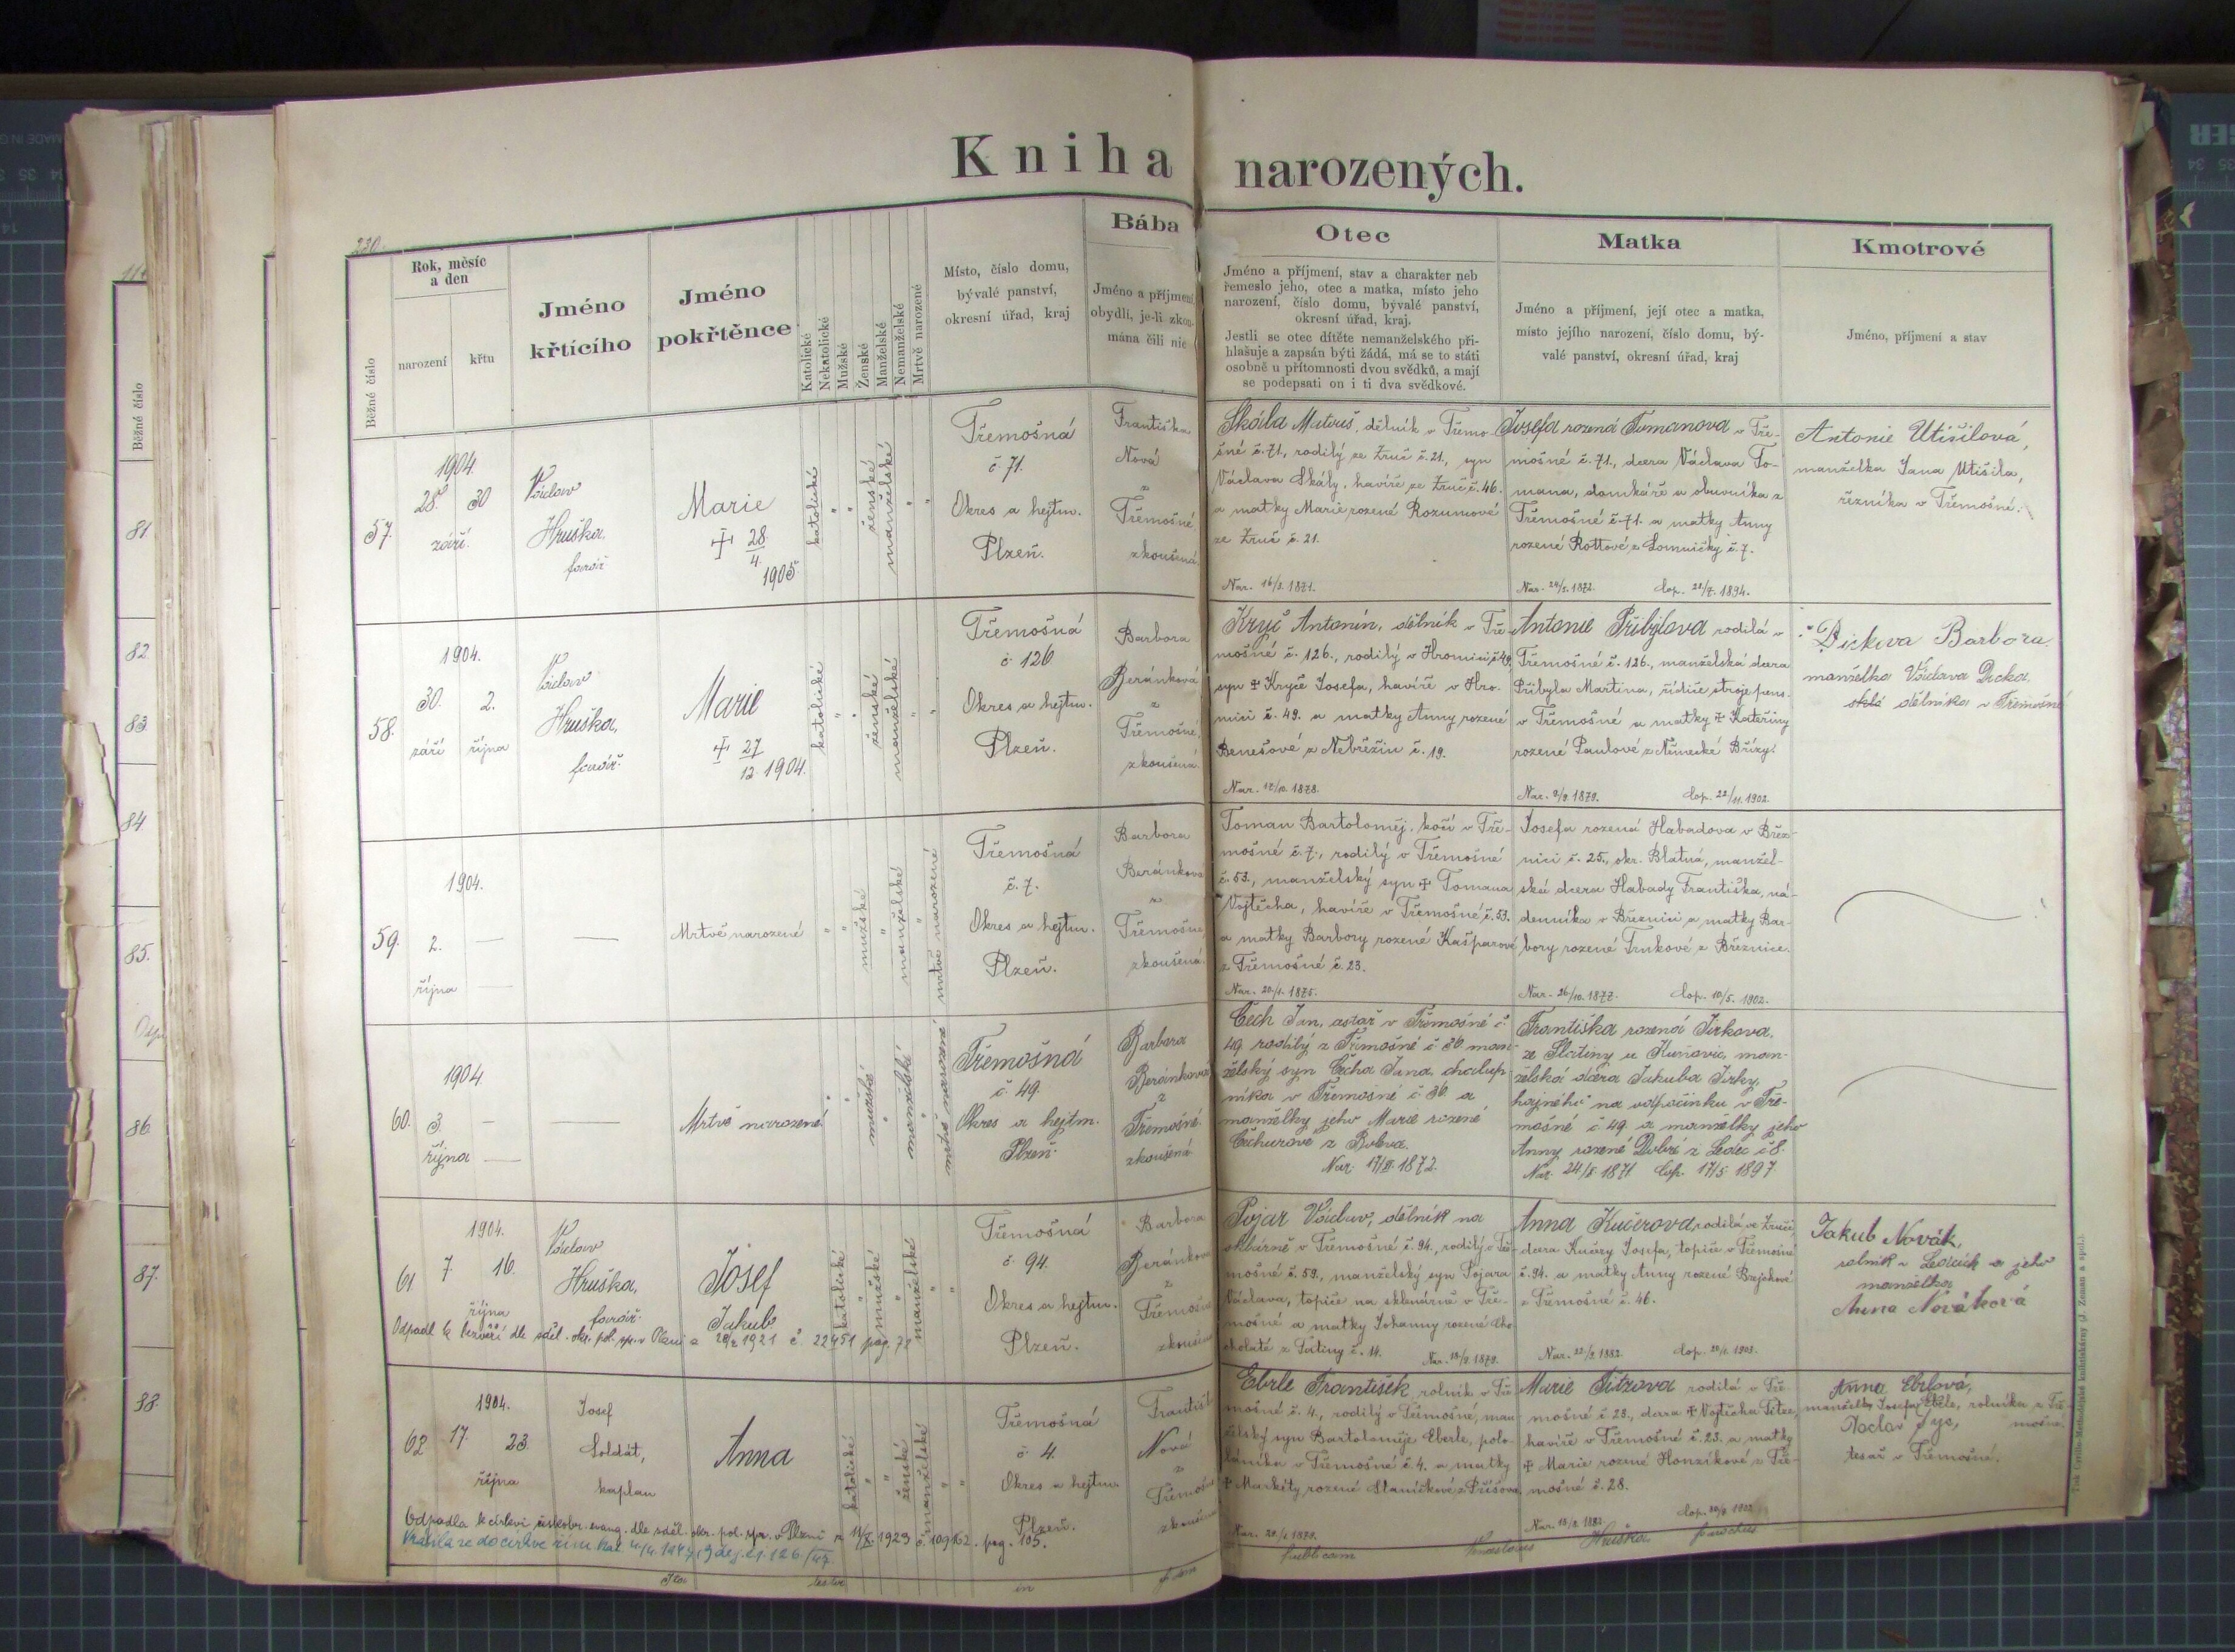 Kniha narozených.
230.
Běžné číslo
Rok, měsíc
a den
narození
křtu
Jméno
křtícího
Jméno
pokřtěnce
Katolické
Nekatolické
Mužské
Ženské
Manželské
Nemanželské
Mrtvě narozené
Místo, číslo domu,
bývalé panství,
okresní úřad, kraj
Bába
Jméno a příjmení
obydlí, je-li zkou-
mána čili nic
Otec
Jméno a příjmení, stav a charakter neb
řemeslo jeho, otec a matka, místo jeho
narození, číslo domu, bývalé panství,
okresní úřad, kraj.
Jestli se otec dítěte nemanželského při-
hlašuje a zapsán býti žádá, má se to státi
osobně u přítomnosti dvou svědků, a mají
se podepsati on i ti dva svědkové.
Matka
Jméno a příjmení, její otec a matka,
místo jejího narození, číslo domu, bý-
valé panství, okresní úřad, kraj
Kmotrové
Jméno, příjmení a stav
57.
1904.
28. 30
září.
Václav
Hruška,
farář
Marie
+ 28.
4.
1905
katolické
ženské
manželské
Třemošná
č. 71.
Okres a hejtm.
Plzeň.
Františka
Nová
z
Třemošné
zkoušená.
Skála Matouš, dělník v Třemo-
šné č. 71., rodilý ze Zruč č. 21., syn
Václava Skály, havíře ze Zruč č. 46.
a matky Marie rozené Rozumové
ze Zruč č. 21.
Nar. 16/2. 1871.
Josefa rozená Tomanova v Tře-
mošné č. 71., dcera Václava To-
mana, domkáře a obuvníka z
Třemošné č. 71. a matky Anny
rozené Rottové z Lomničky č. 7.
Cop. 22/7. 1894.
Antonie Utišilová,
manželka Jana Utišila,
řezníka v Třemošné.
58.
1904.
30. 2.
září října
Václav
Hruška,
farář.
Marie
+ 27
12. 1904.
katolické
ženské
manželské
Třemošná
č. 126
Okres a hejtm.
Plzeň.
Barbora
Beránková
z
Třemošné
zkoušená.
Kryč Antonín, dělník v Tře-
mošné č. 126., rodilý v Hromici č. 49,
syn + Kryče Josefa, havíře v Hro-
mici č. 49. a matky Anny rozené
Benešové z Nebřezin č. 19.
Nar. 12/10. 1878.
Antonie Přibylova rodilá v
Třemošné č. 126., manželská dcera
Přibyla Martina, řidiče stroje pens.
v Třemošné a matky + Kateřiny
rozené Paulové z Německé Břízy.
Nar. 2/9. 1879. Cop. 22/11. 1902.
Barbora
manželka Václava
dělníka v Třemošné
59.
1904.
2.
října
Mrtvě narozené
mužské
manželské
mrtvě narozené
Třemošná
č. 7.
Okres a hejtm.
Plzeň.
Barbora
Beránková
z
Třemošné
zkoušená.
Toman Bartoloměj, kočí v Tře-
mošné č. 7., rodilý v Třemošné
č. 53., manželský syn + Tomana
Vojtěcha, havíře v Třemošné č. 53.
a matky Barbory rozené Kašparové
z Třemošné č. 23.
Nar. 20/1. 1875.
Josefa rozená Habadova v Břez-
nici č. 25., okr. Blatná, manžel-
ská dcera Habady Františka, ná-
denníka v Březnici a matky Bar-
bory rozené Trnkové z Březnice.
Nar. 26/10. 1877. Cop. 10/5. 1902.
60.
1904.
3.
října
Mrtvě narozené
mužské
manželské
mrtvě narozené
Třemošná
č. 49.
Okres a hejtm.
Plzeň.
Barbora
Beránková
z
Třemošné.
zkoušená.
Čech Jan, astař v Třemošné č.
49 rodilý z Třemošné č. 36. man-
želský syn Čecha Jana, chalup-
níka v Třemošné č. 36. a
manželky jeho Marie rozené
Čechurové z Bolevce.
Nar. 17/II. 1872.
Františka rozená Jirkova,
ze Slatiny u Kunovic, man-
želská dcera Jakuba Jirky,
hajného na odpočinku v Tře-
mošné č. 49. a manželky jeho
Anny rozené Dobré z Ledec č. 8.
Nar. 24/X 1871 Cop. 17/5 1897.
61.
1904.
7. 16.
října
Václav
Hruška,
farář.
Josef
Jakub.
katolické
mužské
manželské
Třemošná
č. 94.
Okres a hejtm.
Plzeň.
Barbora
Beránková
z
Třemošné
zkoušená
Pojar Václav, dělník na
sklárně v Třemošné č. 94., rodilý v Tře-
mošné č. 59., manželský syn Pojara
Václava, topiče na sklenárně v Tře-
mošné a matky Johanny rozené Cho-
cholaté z Tatiny č. 14.
Nar. 13/9. 1879.
Anna Kučerova rodilá ve Zruči,
dcera Kučery Josefa, topiče v Třemošné
č. 94. a matky Anny rozené Brejchové
z Třemošné č. 46.
Nar. 22/9. 1882. Cop. 20/1. 1903.
Jakub Novák,
rolník v Ledcích a jeho
manželka
Anna Nováková
Odpadl k bezvěří dle sděl. okr. pol. spr. v Plzni z 1921 č. 22451 pag. 72
62
1904.
17. 23.
října
Josef
Soldát,
kaplan
Anna
katolické
ženské
manželské
Třemošná
č. 4.
Okres a hejtm.
Plzeň.
Františka
Nová
z
Třemošné
zkoušená
Eberle František, rolník v Tře-
mošné č. 4., rodilý v Třemošné, man-
želský syn Bartoloměje Eberle, polo-
láníka v Třemošné č. 4. a matky
+ Markéty rozené Staníčkové z Příšova
Nar. 20/1. 1879.
Marie Sitzova rodilá v Tře-
mošné č. 23., dcera + Vojtěcha Sitze,
havíře v Třemošné č. 23. a matky
+ Marie rozené Honzíkové z Tře-
mošné č. 28.
Nar. 13/2. 1882.
Anna Eberlová,
manželka Josefa Eberle, rolníka z Tře-
mošné
Václav Syc,
tesař v Třemošné.
Odpadla k církvi českobr. evang. dle sděl. okr. pol. spr. v Plzni z 11/X. 1923 č. 109162. pag. 105.
Vrátila se do církve řím. kat.
Ita testor in fidem publicam Venceslaus Hruška parochus
Běžné číslo
81.
82
83.
84
85.
86
87.
88.
Tisk Cyrillo-Methodějské knihtiskárny (J. Zeman a spol.).